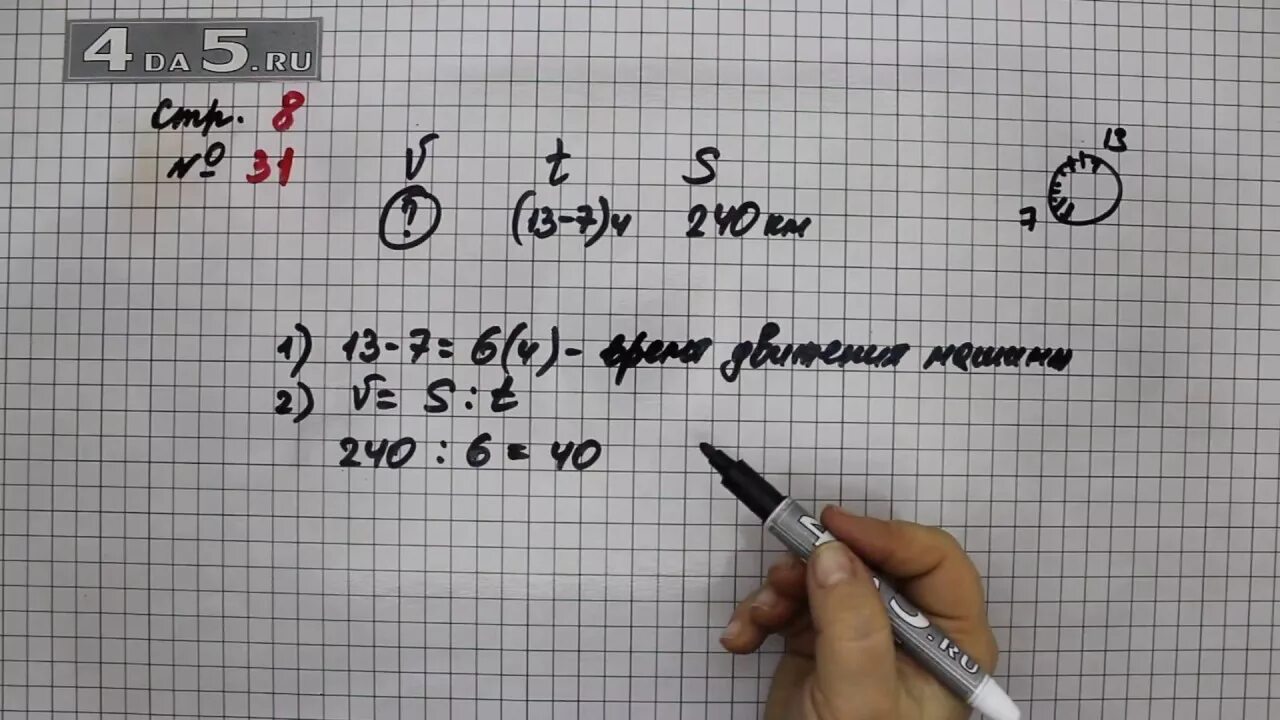 4 DA 5.RU
Стр. 8
№ 31
V t S
? (13-7)ч 240 км
13
7
1) 13-7=6(ч)- время движения машины
2) V= S : t
240 : 6 = 40
.RU